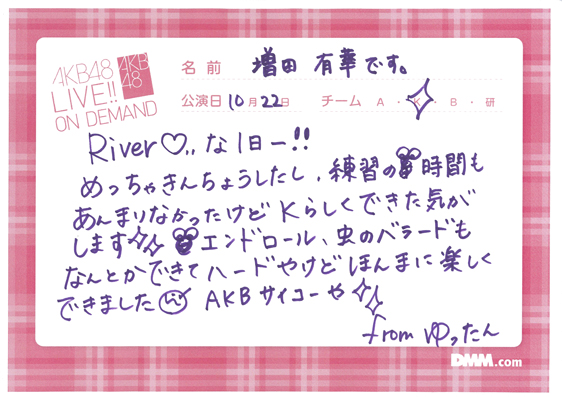 AKB48
LIVE!!
ON DEMAND
AKB
48
名前 増田 有華です。
公演日 10月22日 チーム A・K・B・研
River♡,, な1日ー!!
めっちゃきんちょうしたし、練習の時間も
あんまりなかったけどKらしくできた気が
します エンドロール、虫のバラードも
なんとかできてハードやけどほんまに楽しく
できました AKBサイコーや
from ゆったん
DMM.com